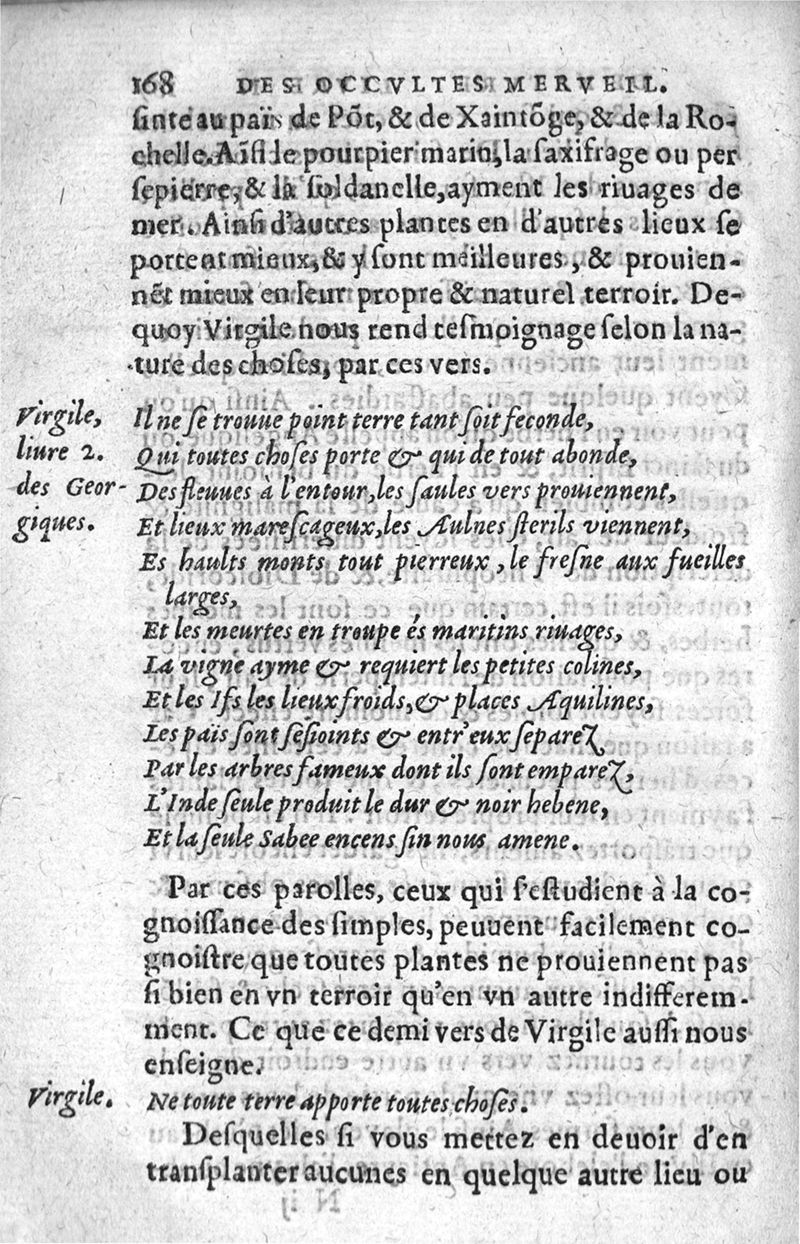 168 DES OCCVLTES MERVEIL.
ſinte au païs de Põt, & de Xaintõge, & de la Ro-
chelle. Aĩſi le pourpier marin, la ſaxifrage ou per
ſepierre, & la ſoldanelle, ayment les riuages de
mer. Ainſi d'autres plantes en d'autres lieux ſe
portent mieux, & y ſont meilleures, & prouien-
nẽt mieux en leur propre & naturel terroir. De-
quoy Virgile nous rend teſmoignage ſelon la na-
ture des choſes, par ces vers.
Virgile,
liure 2.
des Geor-
giques.
Il ne ſe trouue point terre tant ſoit feconde,
Qui toutes choſes porte & qui de tout abonde,
Des fleuues à l'entour, les ſaules vers prouiennent,
Et lieux mareſcageux, les Aulnes ſterils viennent,
Es haults monts tout pierreux, le freſne aux fueilles
larges,
Et les meurtes en troupe és maritins riuages,
La vigne ayme & requiert les petites colines,
Et les Ifs les lieux froids, & places Aquilines,
Les païs ſont ſeſioints & entr'eux ſeparez,
Par les arbres fameux dont ils ſont emparez,
L'Inde ſeule produit le dur & noir hebene,
Et la ſeule Sabee encens fin nous amene.
Par ces parolles, ceux qui ſ'eſtudient à la co-
gnoiſſance des ſimples, peuuent facilement co-
gnoiſtre que toutes plantes ne prouiennent pas
ſi bien en vn terroir qu'en vn autre indifferem-
ment. Ce que ce demi vers de Virgile auſſi nous
enſeigne.
Virgile.
Ne toute terre apporte toutes choſes.
Deſquelles ſi vous mettez en deuoir d'en
tranſplanter aucunes en quelque autre lieu ou